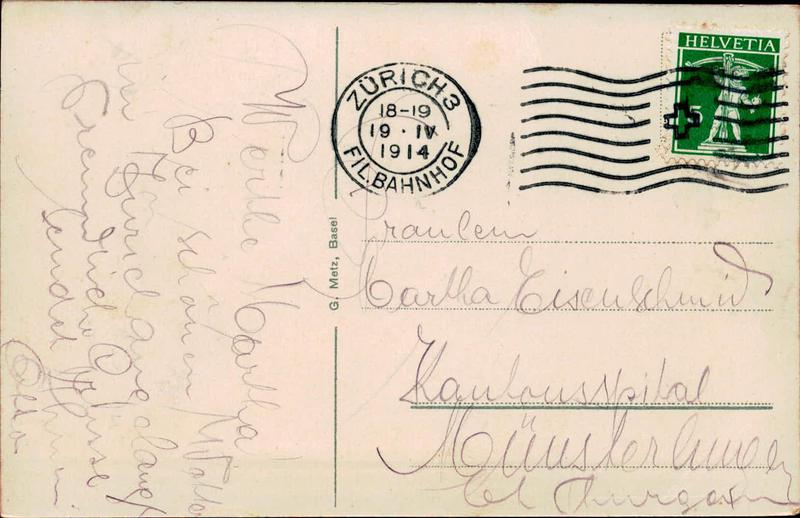 Werthe Martha!
Bei schönem Wetter
in Zürich angelangt
Freundliche Grüsse
sendet Ihnen
Otto
G. Metz, Basel
ZÜRICH 3
18-19
19 · IV
1914
FIL. BAHNHOF
HELVETIA
5
Fräulein
Martha Eisenschmid
Kantonsspital
Münsterlingen
Ct Thurgau